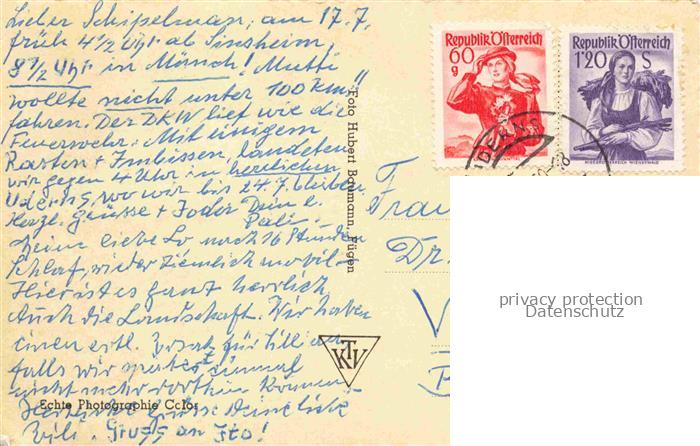 Lieber Schipselman, am 17.7.
früh 4 1/2 Uhr ab Sinsheim,
8 1/2 Uhr in Münch! Mutti
wollte nicht unter 100 km
fahren. Der DKW lief wie die
Feuerwehr. Mit einigem
Rasten + Imbissen, landeten
wir gegen 4 Uhr in herrlichen
Uderns, wo wir bis 24.7. bleiben
Herzl. Grüsse + Dein
liebe Lo nach 16 Stunden
Schlaf, wieder ziemlich mobil.
Hier ist es ganz herrlich,
Auch die Landschaft. Wir haben
einen evtl. Ersatz für
falls wir einmal
nicht mehr dorthin können.
Deine liebe
Gruss an
Foto Hubert Baumann, Fügen
Echte Photographie Color
KTV
Republik Österreich
60
g
Republik Österreich
1'20 S
NIEDERÖSTERREICH WIENERWALD
UDERNS
Frau
Dr.
privacy protection
Datenschutz